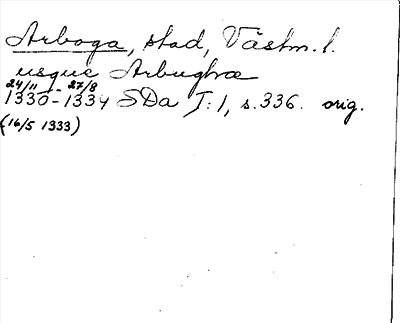 Arboga, stad, Västm. l.
usque Arbughæ
24/11 - 27/8
1330-1334 SDa I:1, s.336. orig.
(16/5 1333)